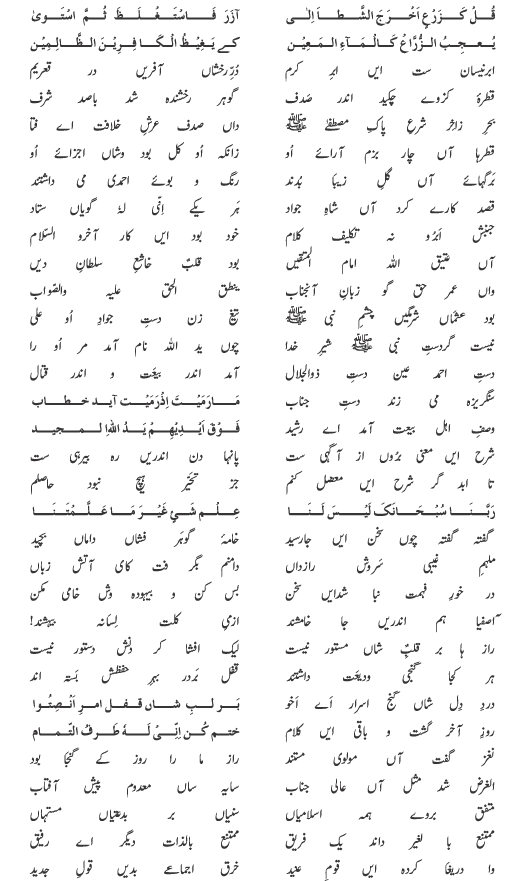 قُلْ کَزَرْعٍ اَخْرَجَ الشَّطأ اِلٰی آزَرَ فَاسْتَغْلَظَ ثُمَّ اسْتَوٰی
یُعْجِبُ الزُّرَّاعَ کَالْمَآءِ الْمَعِیْن کے یَغِیْظُ الْکَافِرِیْنَ الظَّالِمِیْن
ابرنیسان ست ایں ابرِ کرم دُرِّ رخشاں آفریں در قعریم
قطرۂ کزوے چکید اندر صَدف گوہر رخشندہ شد باصد شرف
بحرِ زاخر شرع پاک مصطفیٰ ﷺ داں صدف عرش خلافت اے فتا
قطرہا آں چار بزم آرائے اُو زانکہ اُو کل بود وشاں اجزائے اُو
بَرگہائے آں گلِ زیبا بُدند رنگ و بوئے احمدی می داشتند
قصد کارے کرد آں شاہِ جواد ہَر یکے اِنِّی لَہٗ گویاں ستاد
جنبش اَبرُو نہ تکلیف کلام خود بود ایں کار آخرو السّلام
آں عتیق اللہ امام المتقیں بود قلبِ خاشعِ سلطانِ دیں
واں عمر حق گو زبانِ آنجناب ینطق الحق علیہ والصّواب
بود عثماں شرمگیں چشمِ نبی ﷺ تیغ زن دستِ جوادِ اُو علی
نیست گردستِ نبی ﷺ شیرِ خدا چوں ید اللہ نام آمد مر اُو را
دستِ احمد عین دستِ ذوالجلال آمد اندر بیعَت و اندر قتال
سنگریزہ می زند دستِ جناب مَارَمَیْتَ اِذْرَمَیْتَ آید خطاب
وصفِ اہلِ بیعت آمد اے رشید فَوْقَ اَیْدِیْہِمْ یَدُ اللّٰہِ الْمَجِید
شرح ایں معنی برُوں از آگہی ست پانہا دن اندریں رہ بیرہی ست
تا ابد گر شرح ایں معضل کنم جز تحَیُّر ہیچ نبود حاصلم
رَبَّنَا سُبْحَانَکَ لَیْسَ لَنَا عِلْمُ شَیْءٍ غَیْرَ مَا عَلَّمْتَنَا
گفتہ گفتہ چوں سخن ایں جارسید خامۂ گوہر فشاں داماں بچید
ملہمِ غیبی سَروشِ رازداں دامنم بگر فت کای آتش زباں
در خورِ فہمت نبا شدایں سخن بس کن و بیہودہ وش خامی مکن
اصفیا ہم اندریں جا خامشند ازمی کلت لِسانہ بیہشند!
راز ہا بر قلبِ شاں مستور نیست لیک افشا کر دنش دستور نیست
ہر کجا گنجی ودیعَت داشتند قفل بَردر بہرِ حفظش بَستہ اند
دردِ دِل شاں گنجِ اسرار اَے اَخو بَر لبِ شاں قفل امرِ اَنْصِتُوا
روزِ آخر گشت و باقی ایں کلام ختم کُن اِنِّیْ لَہٗ طَرفُ التَّمَام
نغز گفت آں مولوی مستند راز ما را روز کے گنجا بود
الغرض شد مثل آں عالی جناب سایہ ساں معدوم پیش آفتاب
متفق بروے ہمہ اسلامیاں سنیاں بر بدعتیاں مستہاں
ممتنع با لغیر داند یک فریق ممتنع بالذات دیگر اے رفیق
وا دریغا کردہ ایں قومِ عنید خرقِ اجماعے بدیں قولِ جدید